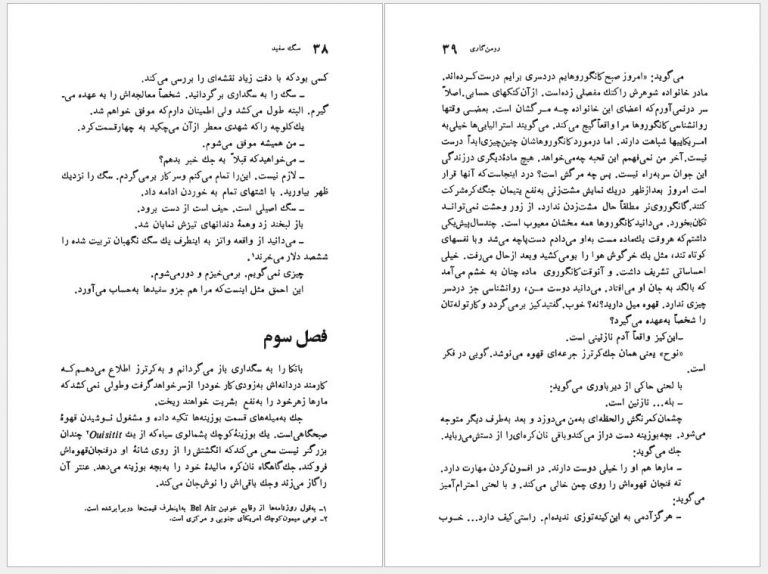 ۳۸ سگ سفید
کسی بود‌که با دقت زیاد نقشه‌ای را بررسی می‌کند.
ـ سگ را به سگداری برگردانید. شخصاً معالجه‌اش را به عهده می‌ـ
گیرم. البته طول می‌کشد ولی اطمینان دارم‌که موفق خواهم شد.
یك‌کلوچه را‌که شهدی معطر ازآن می‌چکید به چهارقسمت‌کرد.
ـ من همیشه موفق می‌شوم.
ـ می‌خواهید‌که قبلاً به جك خبر بدهم؟
ـ لازم نیست. این‌را تمام می‌کنم وسرکار برمی‌گردم. سگ را نزدیك
ظهر بیاورید. با اشتهای تمام به خوردن ادامه داد.
ـ سگ اصیلی است. حیف است از دست برود.
باز لبخند زد وهمهٔ دندانهای تیزش نمایان شد.
ـ می‌دانید از واقعه واتز به اینطرف یك سگ نگهبان تربیت شده را
ششصد دلار می‌خرند۱
چیزی نمی‌گویم. برمی‌خیزم و دورمی‌شوم.
این احمق مثل اینست‌که مرا هم جزو سفیدها به‌حساب می‌آورد.
فصل سوم
باتکا را به سگداری باز می‌گردانم و به‌کرترز اطلاع می‌دهم‌که
کارمند دردانه‌اش به‌زودی‌کار خودرا ازسرخواهدگرفت وطولی نمی‌کشد‌که
مارها زهرخود را به‌نفع بشریت خواهند ریخت.
جك به‌میله‌های قسمت بوزینه‌ها تکیه داده و مشغول نوشیدن قهوهٔ
صبحگاهی‌است. یك بوزینهٔ‌کوچك پشمالوی سیاه‌که از یك Ouisitit۲ چندان
بزرگتر نیست سعی می‌کند‌که انگشتش را از روی شانهٔ او درفنجان‌قهوه‌اش
فروکند. جك‌گاهگاه نان‌کره مالیدهٔ خود را به‌بچه بوزینه می‌دهد. عنتر آن
را‌گاز می‌زند وجك باقی‌اش را نوش‌جان می‌کند.
۱ـ به‌قول روزنامه‌ها از وقایع خونین Bel Air به‌اینطرف قیمت‌ها دوبرابرشده است.
۲ـ نوعی میمون‌کوچك امریکای جنوبی و مرکزی است.
رومن‌گاری ۳۹
می‌گوید: «امروز صبح کانگوروهایم دردسری برایم درست‌کرده‌اند.
مادر خانواده شوهرش را‌كتك مفصلی زده‌است. ازآن‌كتکهای حسابی. اصلاً
سر درنمی‌آورم‌که اعضای این خانواده چه مرگشان است. بعضی وقتها
روانشناسی کانگوروها مرا واقعاً‌گیج می‌کند. می‌گویند استرالیایی‌ها خیلی‌به
امریکاییها شباهت دارند. اما درمورد‌کانگوروهاشان چنین‌چیزی‌ابداً درست
نیست. آخر من نمی‌فهمم این قحبه چه‌می‌خواهد. هیچ مادهٔ‌دیگری درزندگی
این جوان سر‌به‌راه نیست. پس چه مرگش است؟ درد اینجاست‌که آنها قرار
است امروز بعدازظهر دریك نمایش مشت‌زنی به‌نفع یتیمان جنگ‌کره‌شرکت
کنند.‌گانگوروی‌نر مطلقاً حال مشت‌زدن ندارد. از زور وحشت نمی‌تواند
تکان‌بخورد. می‌دانید کانگوروها همه مخشان معیوب است. چندسال‌پیش‌یکی
داشتم‌که هروقت یك‌ماده مست به‌او می‌دادم دست‌پاچه می‌شد وبا نفسهای
کوتاه تند، مثل یك خرگوش هوا را بومی‌کشید وبعد ازحال می‌رفت. خیلی
احساساتی تشریف داشت. و آنوقت کانگوروی ماده چنان به خشم می‌آمد
که بالگد به جان او می‌افتاد. می‌دانید دوست من، روانشناسی جز دردسر
چیزی ندارد. قهوه میل دارید؟نه؟ خوب. گفتید‌کیز برمی‌گردد وکارتوله‌تان
را شخصاً به‌عهده می‌گیرد؟
ـ‌این‌کیز واقعاً آدم نازنینی است.
«نوح» یعنی همان جك‌کرترز جرعه‌ای قهوه می‌نوشد.گویی در فکر
است.
با لحنی حاکی از دیرباوری می‌گوید:
ـ بله... نازنین است.
چشمان‌کمرنگش رالحظه‌ای به‌من می‌دوزد و بعد به‌طرف دیگر متوجه
می‌شود. بچه‌بوزینه دست دراز می‌کندوباقی نان‌کره‌ای‌را از دستش‌می‌رباید.
جك می‌گوید:
ـ مارها هم او را خیلی دوست دارند. در افسون‌کردن مهارت دارد.
ته فنجان قهوه‌اش را روی چمن خالی می‌کند. و با لحنی احترام‌آمیز
می‌گوید:
ـ هرگزآدمی به این‌کینه‌توزی ندیده‌ام. راستی‌کیف دارد... خوب